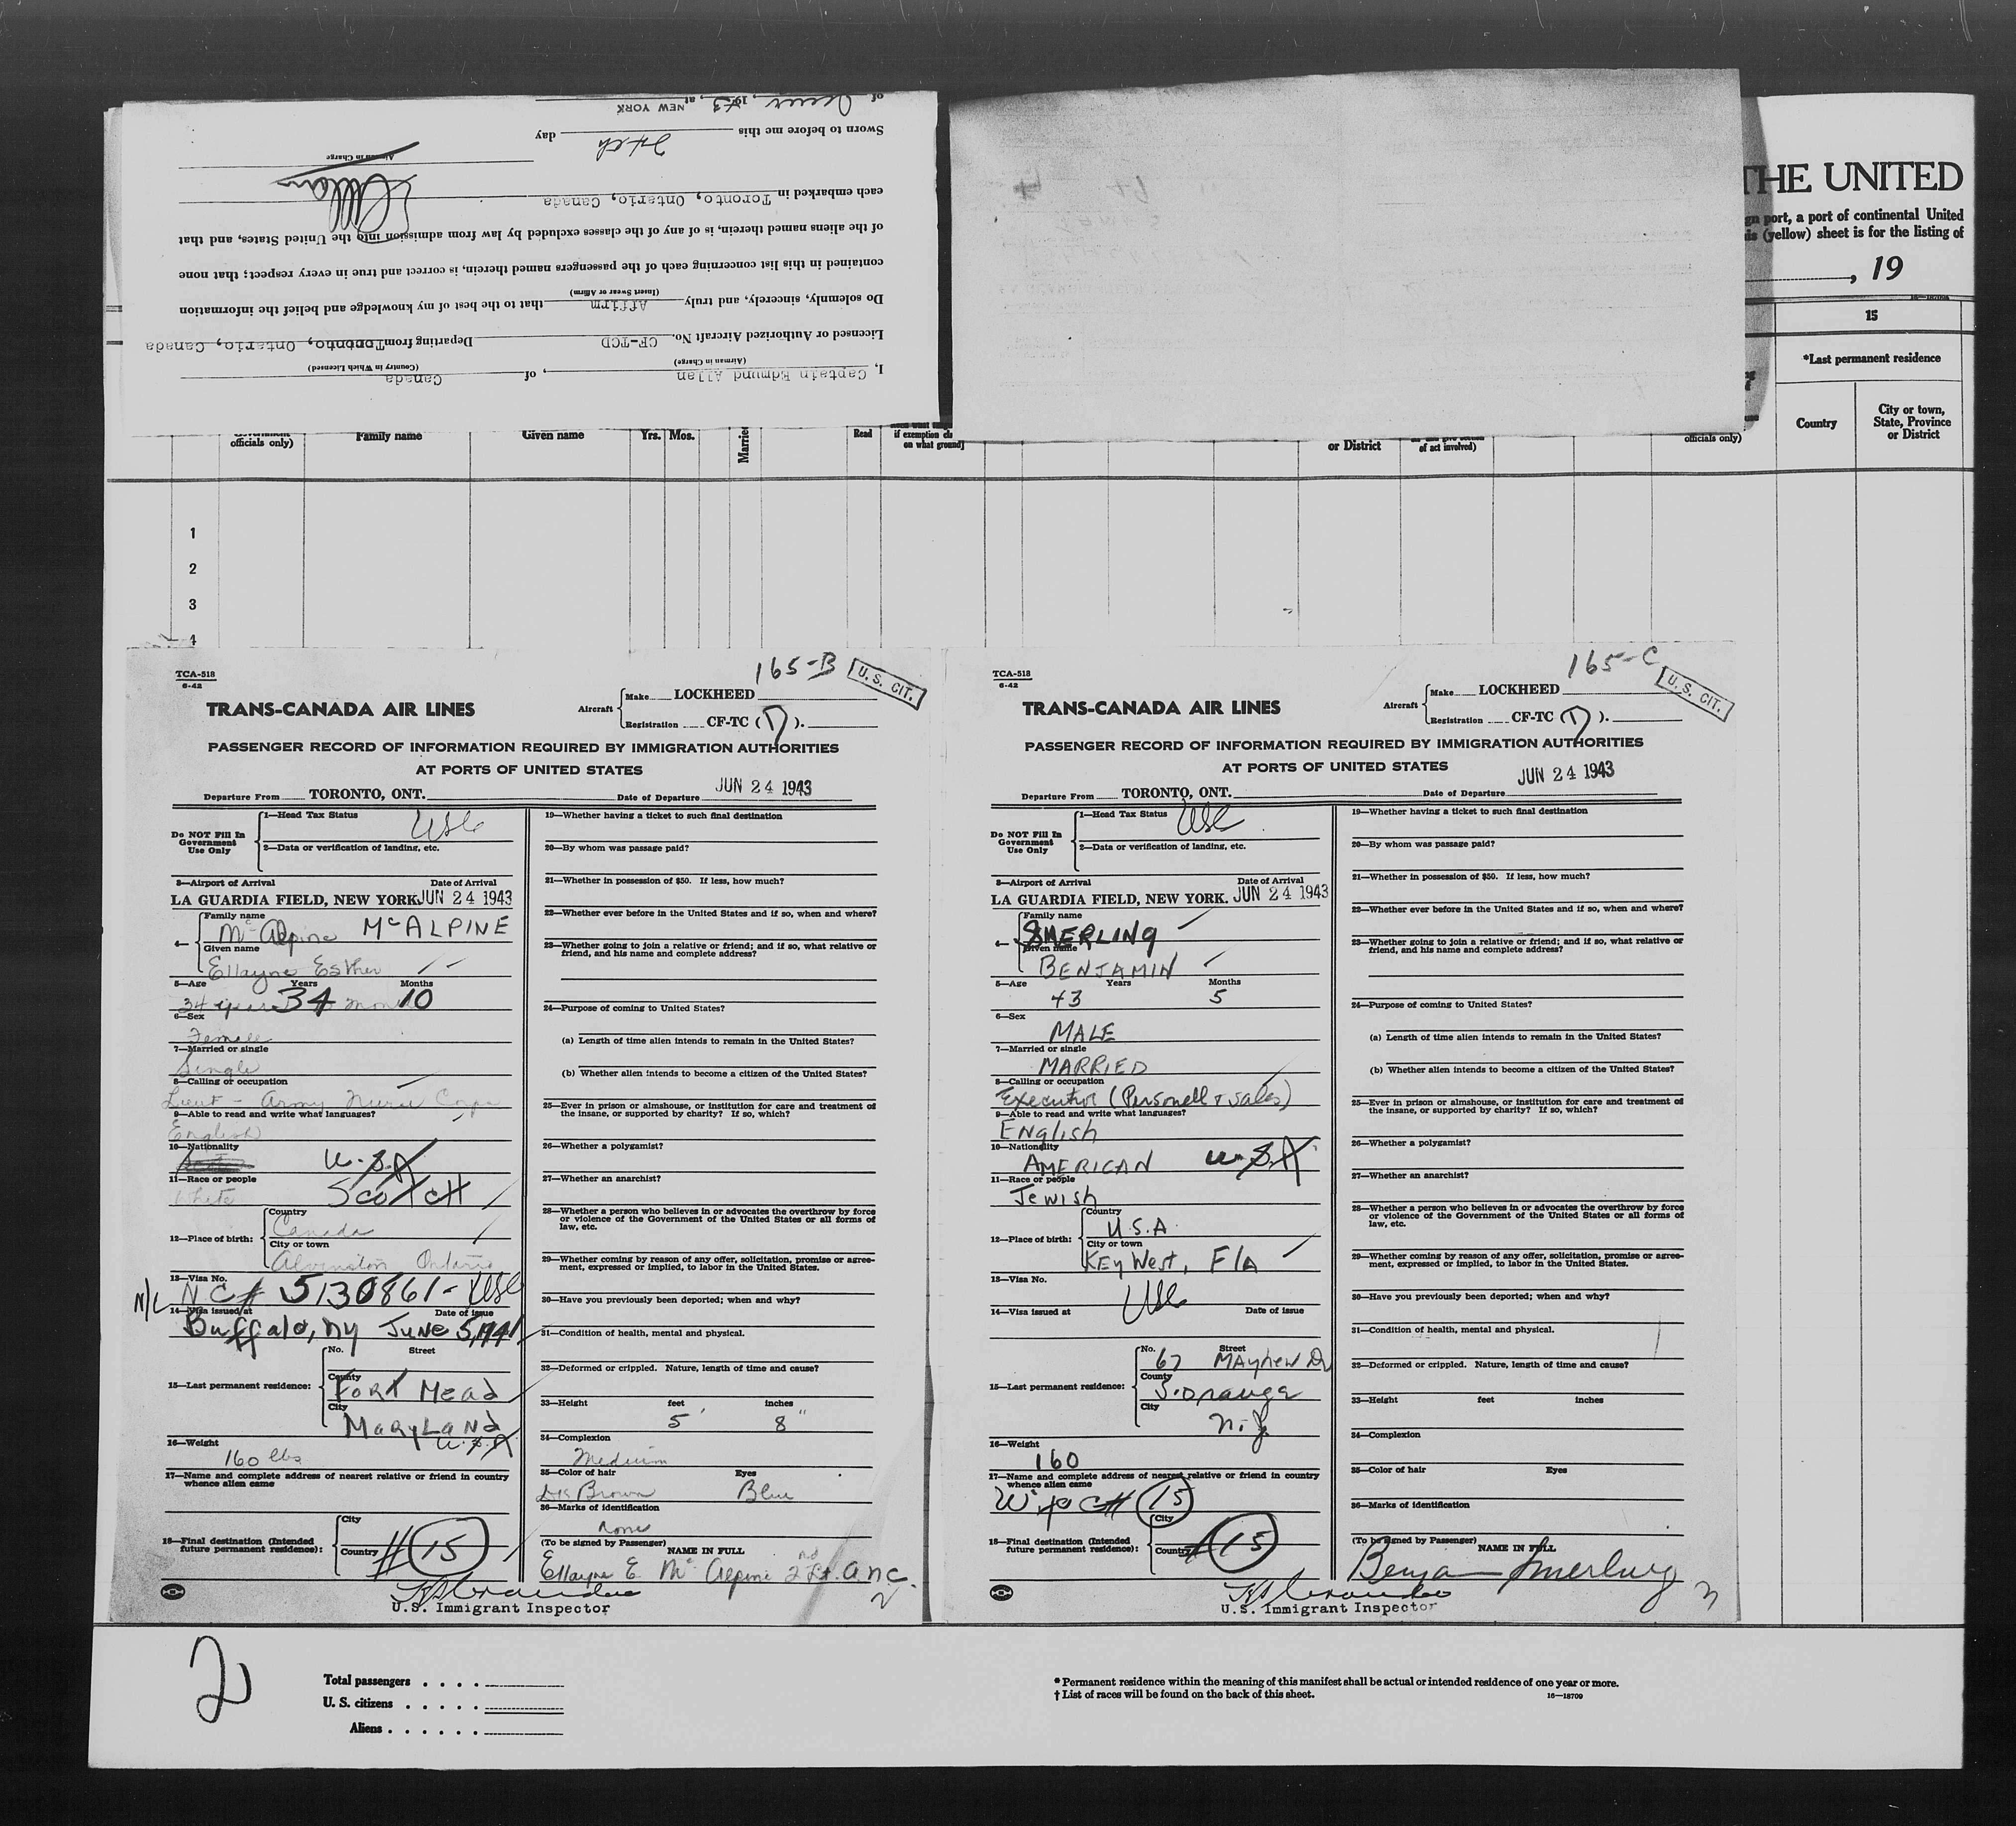 I, Captain Edmund Allan, of Canada
(Airman in Charge) (Country in Which Licensed)
Licensed or Authorized Aircraft No. CF-TCD Departing from Toronto, Ontario, Canada
Do solemnly, sincerely, and truly Affirm that to the best of my knowledge and belief the information
(Insert Swear or Affirm)
contained in this list concerning each of the passengers named therein, is correct and true in every respect; that none
of the aliens named therein, is of any of the classes excluded by law from admission into the United States, and that
each embarked in Toronto, Ontario, Canada
Airman in Charge
Sworn to before me this 24th day
of June, 1943, at NEW YORK
THE UNITED
gn port, a port of continental United
is (yellow) sheet is for the listing of
, 19
15
*Last permanent residence
Country
City or town,
State, Province
or District
officials only)
Family name
Given name
Yrs. Mos.
Married
Read
if exemption
on what ground]
or District
of act involved)
officials only)
1
2
3
4
TCA-518
6-42
165-B
U.S. CIT.
TRANS-CANADA AIR LINES
Aircraft
Make LOCKHEED
Registration CF-TC (D).
PASSENGER RECORD OF INFORMATION REQUIRED BY IMMIGRATION AUTHORITIES
AT PORTS OF UNITED STATES
JUN 24 1943
Departure From TORONTO, ONT. Date of Departure
Do NOT Fill In
Government
Use Only
1—Head Tax Status USC
2—Data or verification of landing, etc.
3—Airport of Arrival Date of Arrival
LA GUARDIA FIELD, NEW YORK. JUN 24 1943
4—
Family name
McAlpine McALPINE
Given name
Ellayne Esther
5—Age Years Months
34 years 34 10
6—Sex
Female
7—Married or single
Single
8—Calling or occupation
Lieut - Army Nurse Corps
9—Able to read and write what languages?
English
10—Nationality
U.S.A
11—Race or people
White Scotch
12—Place of birth:
Country
Canada
City or town
Alvinston Ontario
13—Visa No.
N/C NC# 5130861- USC
14—Visa issued at Date of issue
Buffalo, NY June 5, 1941
15—Last permanent residence:
No. Street
County
Fort Mead
City
Maryland
U.S.A
16—Weight
160 lbs
17—Name and complete address of nearest relative or friend in country
whence alien came
18—Final destination (Intended
future permanent residence):
City
Country # 15
19—Whether having a ticket to such final destination
20—By whom was passage paid?
21—Whether in possession of $50. If less, how much?
22—Whether ever before in the United States and if so, when and where?
23—Whether going to join a relative or friend; and if so, what relative or
friend, and his name and complete address?
24—Purpose of coming to United States?
(a) Length of time alien intends to remain in the United States?
(b) Whether alien intends to become a citizen of the United States?
25—Ever in prison or almshouse, or institution for care and treatment of
the insane, or supported by charity? If so, which?
26—Whether a polygamist?
27—Whether an anarchist?
28—Whether a person who believes in or advocates the overthrow by force
or violence of the Government of the United States or all forms of
law, etc.
29—Whether coming by reason of any offer, solicitation, promise or agree-
ment, expressed or implied, to labor in the United States.
30—Have you previously been deported; when and why?
31—Condition of health, mental and physical.
32—Deformed or crippled. Nature, length of time and cause?
33—Height feet inches
5' 8"
34—Complexion
Medium
35—Color of hair Eyes
Dk Brown Blue
36—Marks of identification
none
(To be signed by Passenger) NAME IN FULL
Ellayne E McAlpine 2nd Lt. anc.
U.S. Immigrant Inspector
2
TCA-518
6-42
165-C
U.S. CIT.
TRANS-CANADA AIR LINES
Aircraft
Make LOCKHEED
Registration CF-TC (D).
PASSENGER RECORD OF INFORMATION REQUIRED BY IMMIGRATION AUTHORITIES
AT PORTS OF UNITED STATES
JUN 24 1943
Departure From TORONTO, ONT. Date of Departure
Do NOT Fill In
Government
Use Only
1—Head Tax Status USC
2—Data or verification of landing, etc.
3—Airport of Arrival Date of Arrival
LA GUARDIA FIELD, NEW YORK. JUN 24 1943
4—
Family name
SMERLING
Given name
BENJAMIN
5—Age Years Months
43 5
6—Sex
MALE
7—Married or single
MARRIED
8—Calling or occupation
Executive (Personell & Sales)
9—Able to read and write what languages?
English
10—Nationality
AMERICAN U.S.A
11—Race or people
Jewish
12—Place of birth:
Country
U.S.A.
City or town
Key West, Fla
13—Visa No.
USC
14—Visa issued at Date of issue
15—Last permanent residence:
No. Street
67 Mayhew Dr
County
S. Orange
City
N.J.
16—Weight
160
17—Name and complete address of nearest relative or friend in country
whence alien came
15
18—Final destination (Intended
future permanent residence):
City
Country # 15
19—Whether having a ticket to such final destination
20—By whom was passage paid?
21—Whether in possession of $50. If less, how much?
22—Whether ever before in the United States and if so, when and where?
23—Whether going to join a relative or friend; and if so, what relative or
friend, and his name and complete address?
24—Purpose of coming to United States?
(a) Length of time alien intends to remain in the United States?
(b) Whether alien intends to become a citizen of the United States?
25—Ever in prison or almshouse, or institution for care and treatment of
the insane, or supported by charity? If so, which?
26—Whether a polygamist?
27—Whether an anarchist?
28—Whether a person who believes in or advocates the overthrow by force
or violence of the Government of the United States or all forms of
law, etc.
29—Whether coming by reason of any offer, solicitation, promise or agree-
ment, expressed or implied, to labor in the United States.
30—Have you previously been deported; when and why?
31—Condition of health, mental and physical.
32—Deformed or crippled. Nature, length of time and cause?
33—Height feet inches
34—Complexion
35—Color of hair Eyes
36—Marks of identification
(To be signed by Passenger) NAME IN FULL
Benjamin Smerling
U.S. Immigrant Inspector
3
2
Total passengers . . . .
U. S. citizens . . . . .
Aliens . . . . . .
* Permanent residence within the meaning of this manifest shall be actual or intended residence of one year or more.
† List of races will be found on the back of this sheet. 16—18709